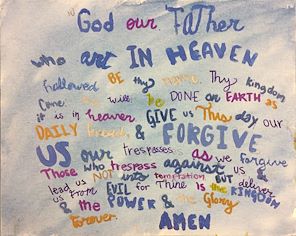 God our Father
who art IN HEAVEN
hallowed BE thy name. Thy kingdom
Come. thy will be DONE on EARTH as
it is in heaven GIVE us This day our
DAILY Bread, & FORGIVE
US our trespasses as we forgive
Those who trespass against us &
lead us NOT into temptation BUT deliver
us From EVIL for Thine is the KINGDOM
& the POWER & the Glory
Forever. AMEN